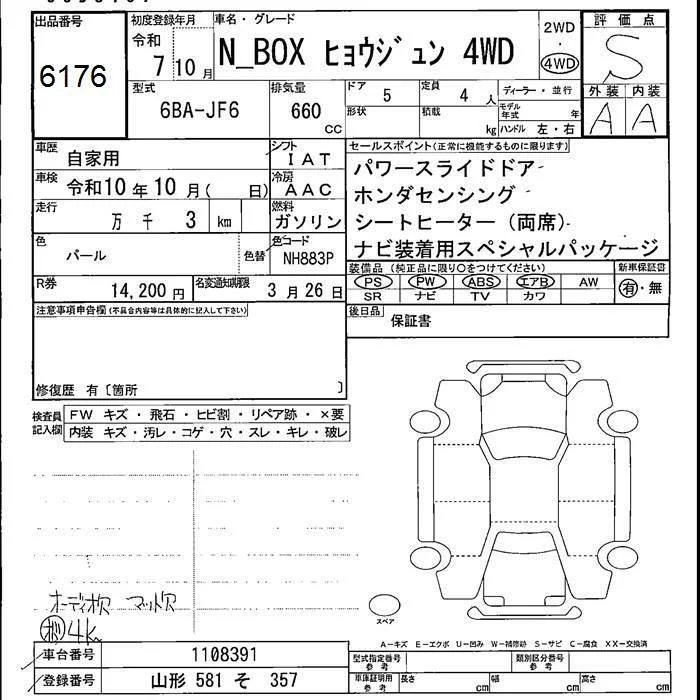 出品番号
6176
初度登録年月
令和
7 10 月
車名・グレード
N_BOX ヒョウジュン 4WD
2WD
・
4WD
評価点
S
外装 内装
A A
型式
6BA-JF6
排気量
660
cc
ドア
5
定員
4 人
ディーラー・並行
形状
積載
kg
モデル年式
年
ハンドル 左・右
車歴
自家用
シフト
IAT
車検
令和10 年 10 月( 日)
冷房
AAC
走行
万 千 3 km
燃料
ガソリン
色
パール
色替
色コード
NH883P
R券
14,200 円
名変通知期限
3 月 26 日
セールスポイント(正常に機能するものに限ります)
パワースライドドア
ホンダセンシング
シートヒーター(両席)
ナビ装着用スペシャルパッケージ
装備品(純正品に限り○をつけてください)
新車保証書
PS PW ABS エアB AW
SR ナビ TV カワ
有・無
後日品
保証書
注意事項申告欄(不具合内容等は具体的に記入して下さい)
修復歴 有〔箇所 〕
検査員
記入欄
FW キズ・飛石・ヒビ割・リペア跡・×要
内装 キズ・汚レ・コゲ・穴・スレ・キレ・破レ
オーディオ欠 マット欠
4k
スペア
A-キズ E-エクボ U-凹み W-補修跡 S-サビ C-腐食 XX-交換済
車台番号
1108391
登録番号
山形 581 そ 357
型式指定番号
参考
類別区分番号
参考
車庫証明用
参考
長さ cm
幅 cm
高さ cm